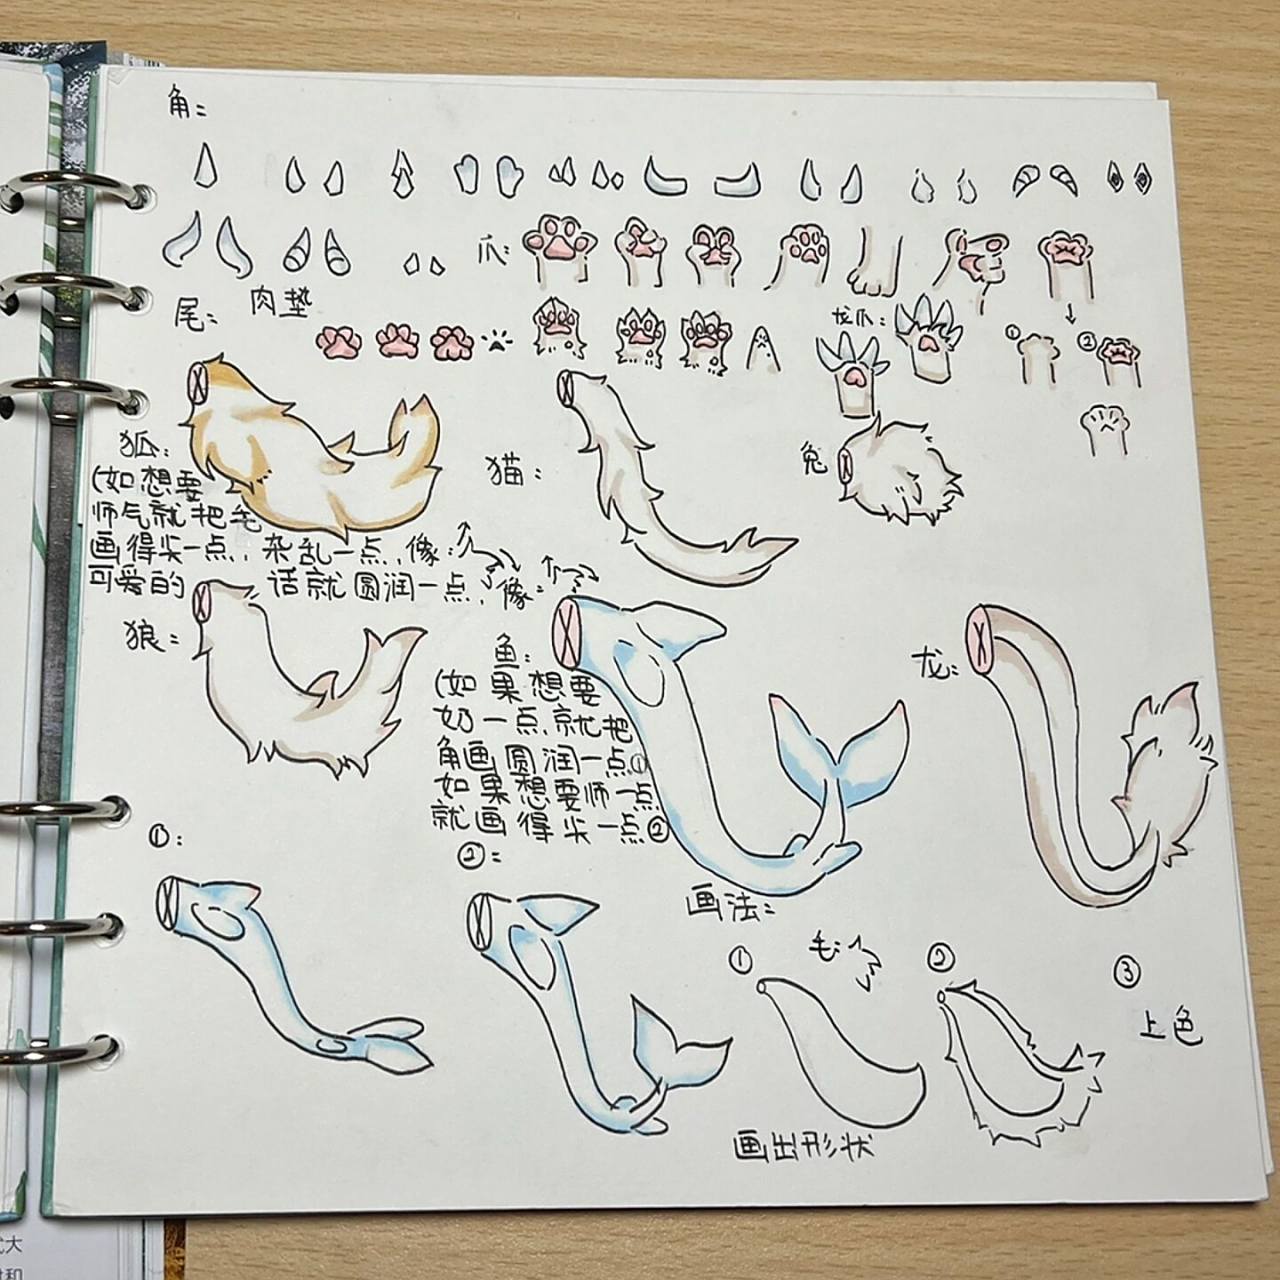 角:
爪:
尾:
肉垫
龙爪:
①
②
狐:
(如想要
师气就把毛
画得尖一点,杂乱一点,像:
可爱的话就圆润一点,像:
猫:
兔
狼:
鱼:
(如果想要
奶一点,就把
角画圆润一点①
如果想要师一点
就画得尖一点②
龙:
①:
②:
画法:
①
毛:
②
③
上色
画出形状